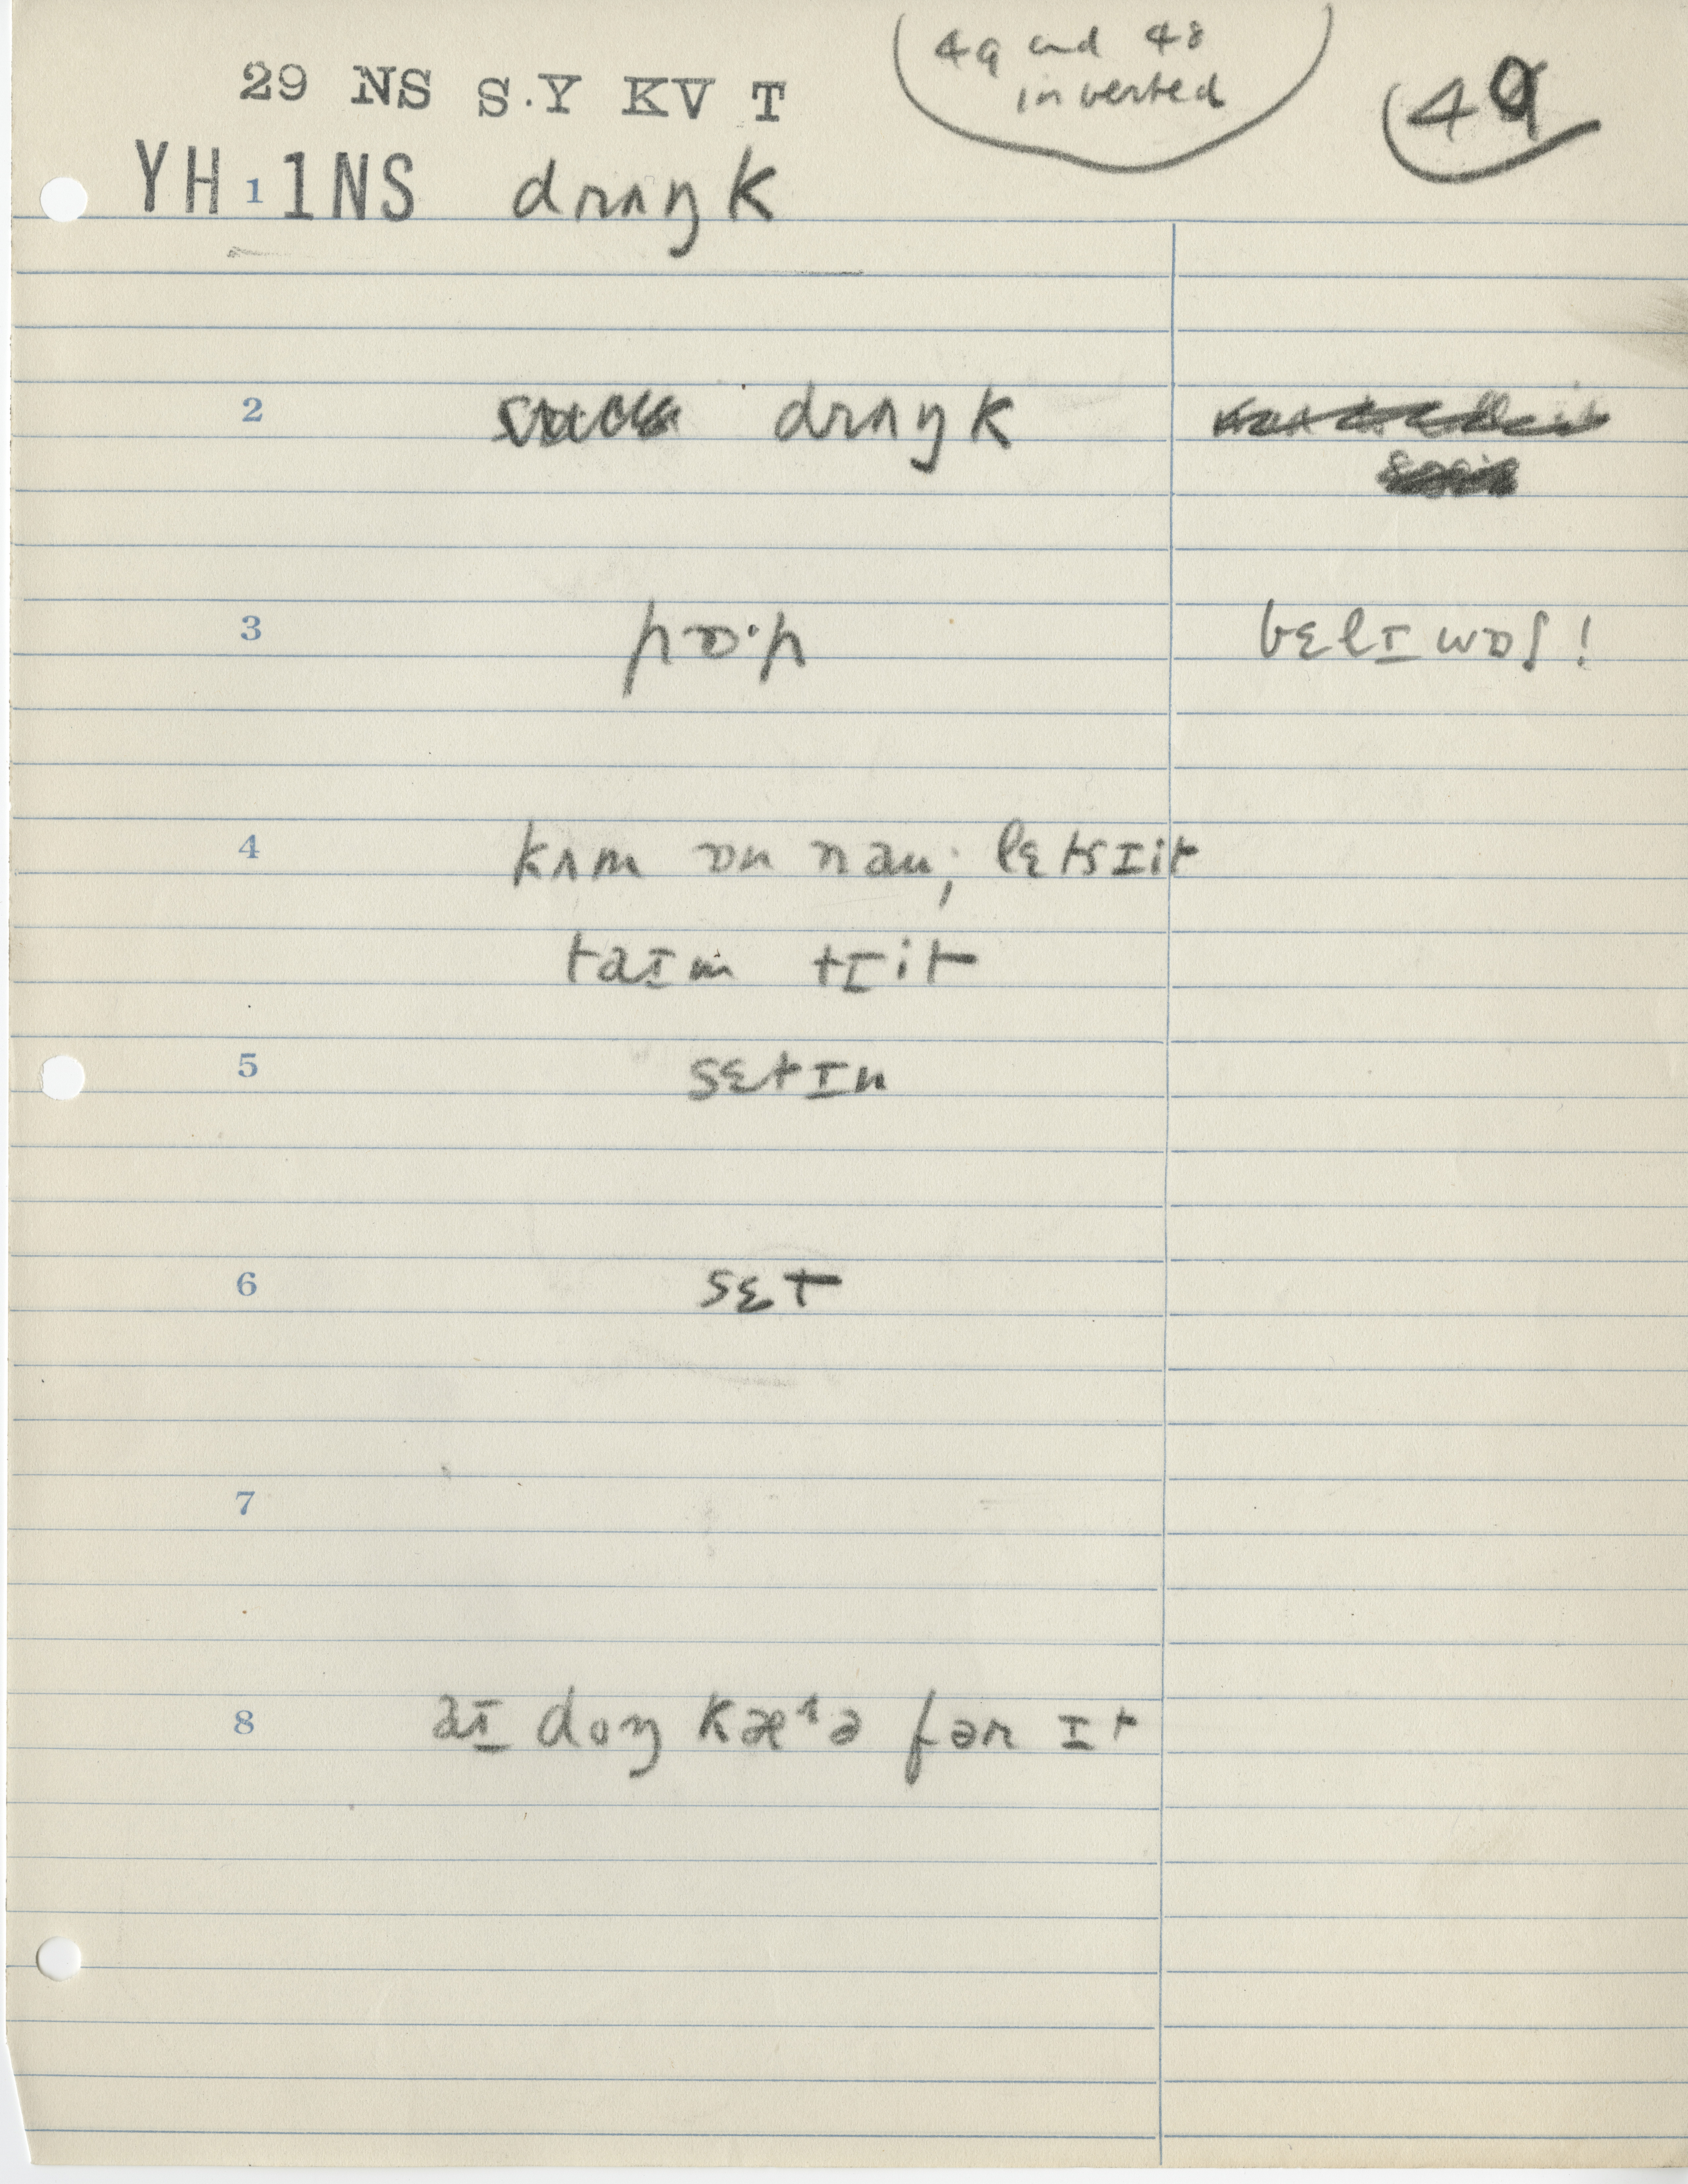 (49 and 48
inverted
29 NS S.Y KV T
49
YH 1 1NS drʌŋk
2 drʌŋk
3 pɒ·p bɛlɪwɒʃ!
4 kʌm ɒn naʊ; lɛtsɪit
taɪm tɪit
5 sɛtɪn
6 sɛt
7
8 aɪ doŋ kæ¹ə fər ɪt